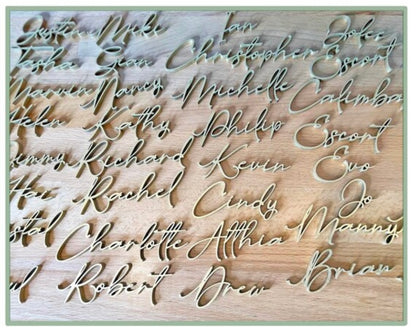 Mike Ian Dolce
Tasha Sean Christopher Escort
Marvin Nancy Michelle Calimba
Helen Kathy Philip Escort
Richard Kevin Evo
Rachel Cindy Jo
Charlotte Atthia Manny
Robert Drew Brian